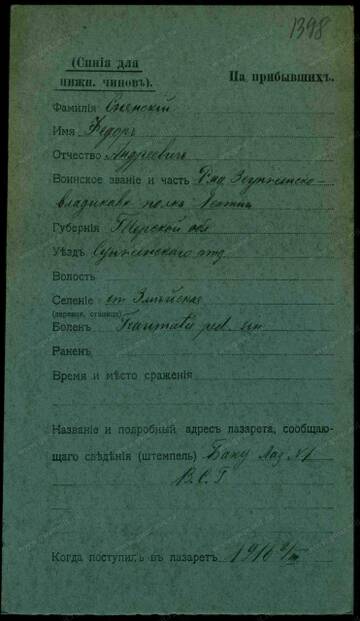 1398
(Синія для
нижн. чиновъ).
На прибывшихъ.
Фамилія
Имя Ѳедоръ
Отчество Андреевичъ
Воинское званіе и часть
полка
Губернія Терской обл
Уѣздъ Сунженскаго отд
Волость
Селеніе ст Змѣйская
(деревня, станица)
Боленъ
Раненъ
Время и мѣсто сраженія
Названіе и подробный адресъ лазарета, сообщаю-
щаго свѣдѣнія (штемпель) Баку Лаз №1
В.С.Г
Когда поступилъ въ лазаретъ 1916